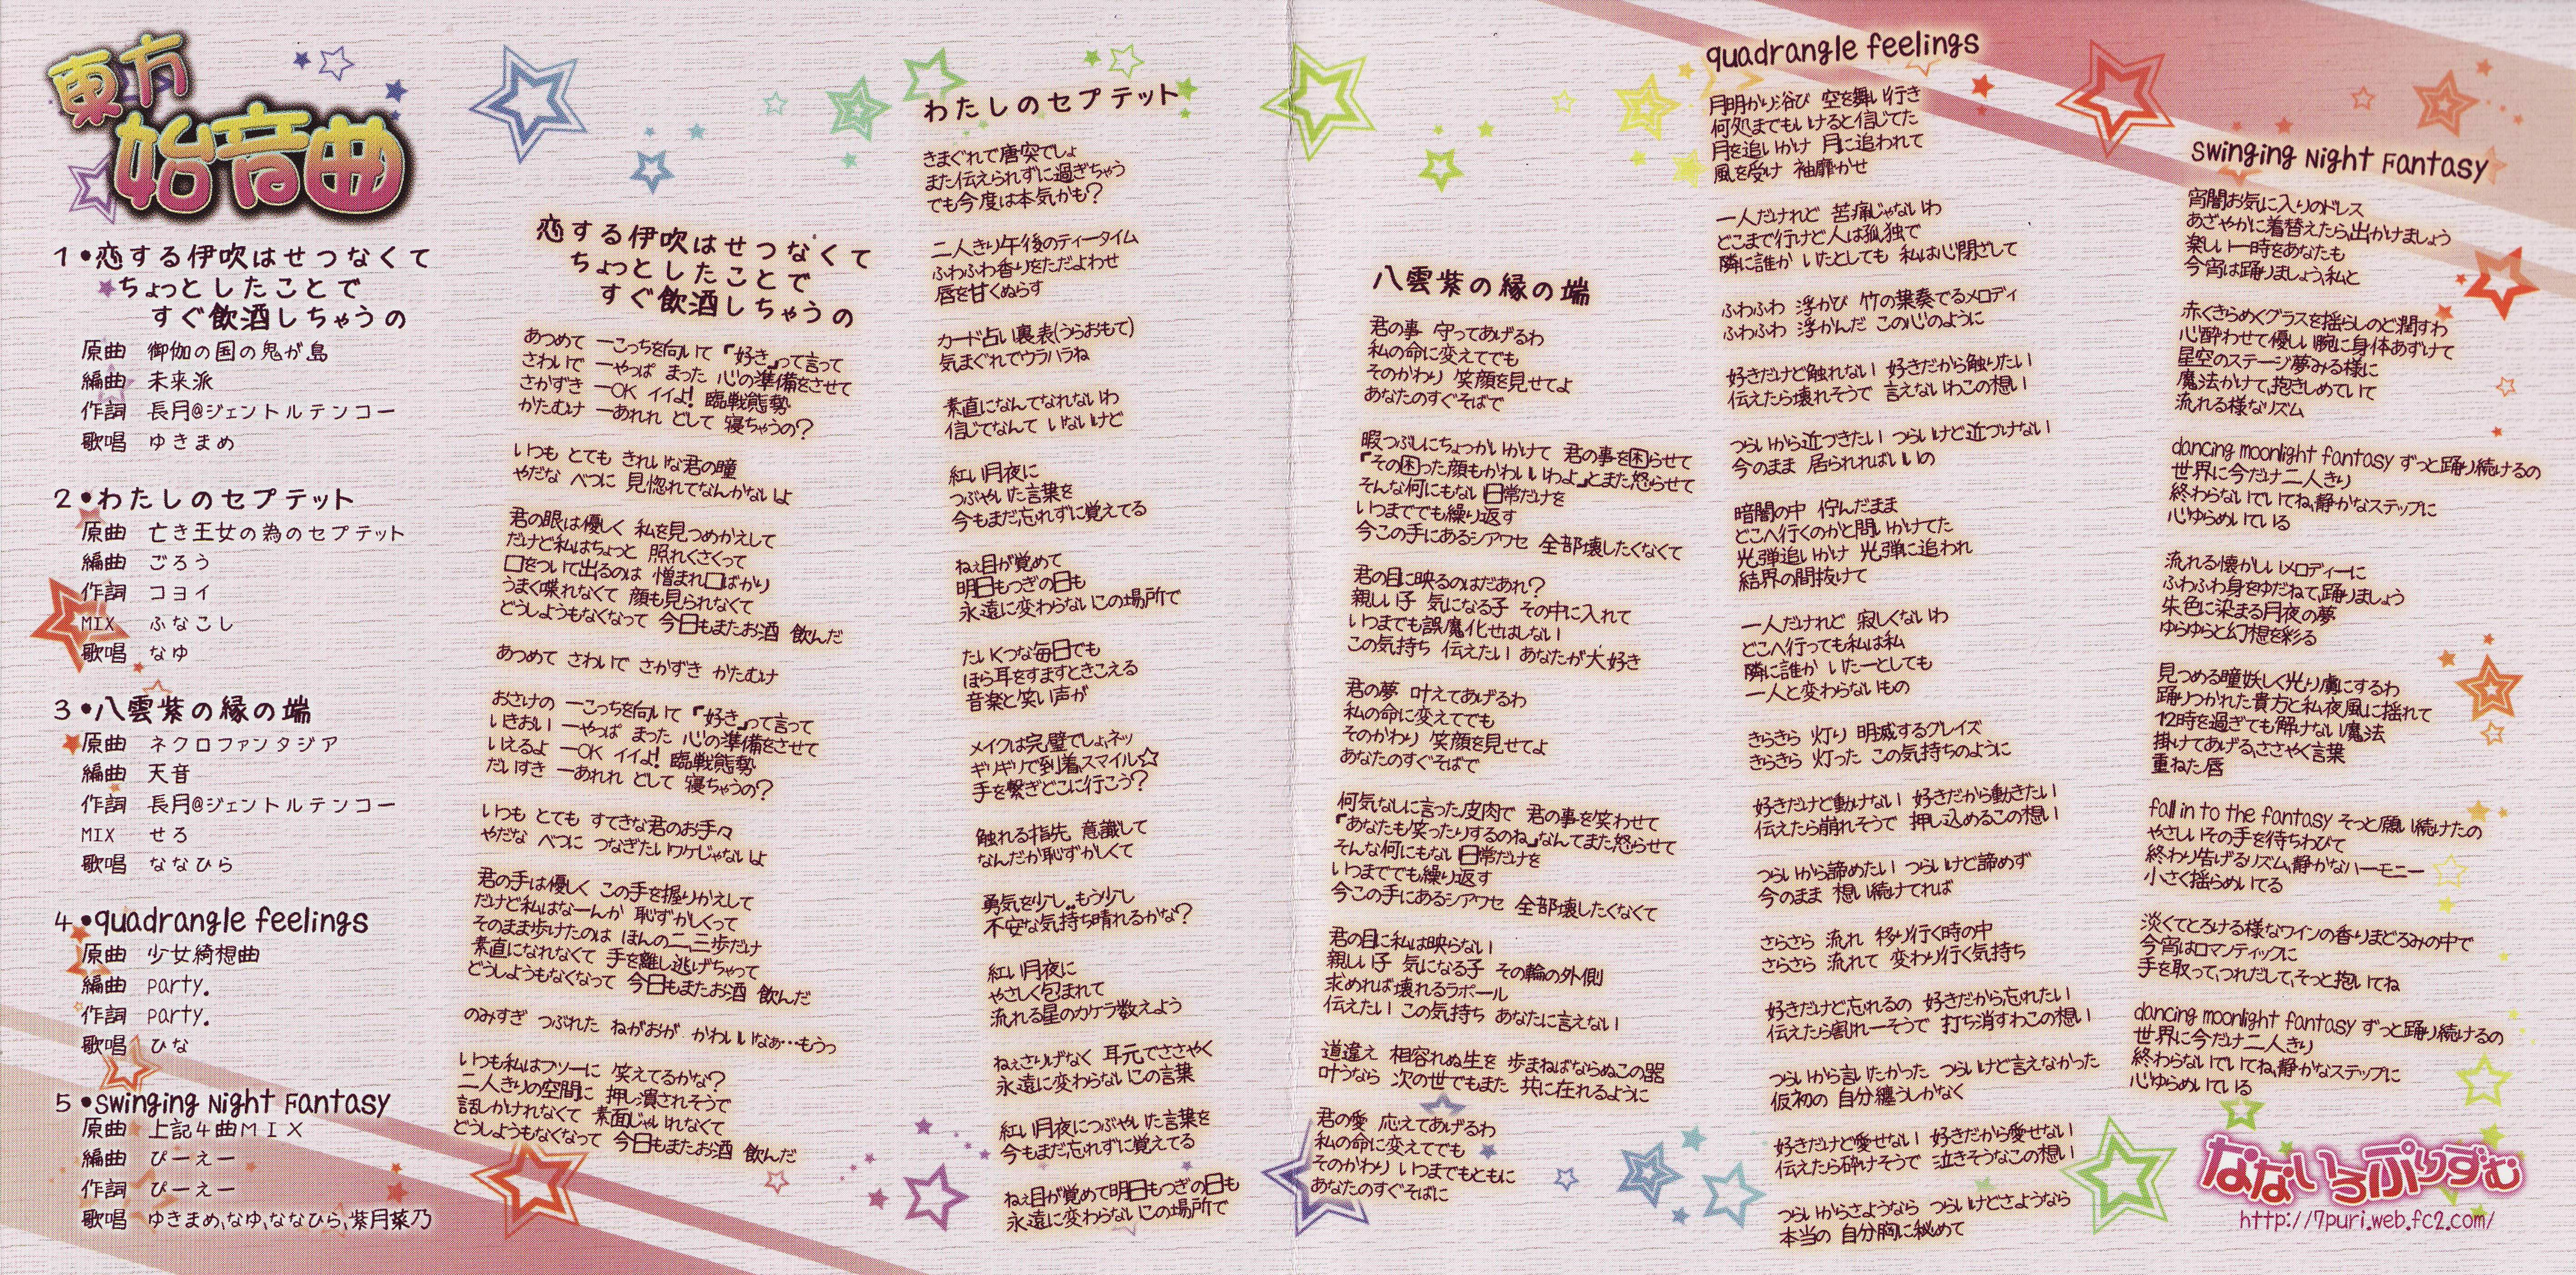 東方
始音曲
1•恋する伊吹はせつなくて
ちょっとしたことで
すぐ飲酒しちゃうの
原曲 御伽の国の鬼が島
編曲 未来派
作詞 長月@ジェントルテンコー
歌唱 ゆきまめ
2•わたしのセプテット
原曲 亡き王女の為のセプテット
編曲 ごろう
作詞 コヨイ
MIX ふなこし
歌唱 なゆ
3•八雲紫の縁の端
原曲 ネクロファンタジア
編曲 天音
作詞 長月@ジェントルテンコー
MIX せろ
歌唱 ななひら
4•quadrangle feelings
原曲 少女綺想曲
編曲 party.
作詞 party.
歌唱 ひな
5•Swinging Night Fantasy
原曲 上記4曲MIX
編曲 ぴーえー
作詞 ぴーえー
歌唱 ゆきまめ,なゆ,ななひら,紫月菜乃
恋する伊吹はせつなくて
ちょっとしたことで
すぐ飲酒しちゃうの
あつめて ーこっちを向いて「好き」って言って
さわいで ーやっぱ まった 心の準備をさせて
さかずき ーOK イイよ! 臨戦態勢
かたむけ ーあれれ どして 寝ちゃうの?
いつも とても きれいな君の瞳
やだな べつに 見惚れてなんかないよ
君の眼は優しく 私を見つめかえして
だけど私はちょっと 照れくさくって
口をついて出るのは 憎まれ口ばかり
うまく喋れなくて 顔も見られなくて
どうしようもなくなって 今日もまたお酒 飲んだ
あつめて さわいで さかずき かたむけ
おさけの ーこっちを向いて「好き」って言って
いきおい ーやっぱ まった 心の準備をさせて
いえるよ ーOK イイよ! 臨戦態勢
だいすき ーあれれ どして 寝ちゃうの?
いつも とても すてきな君のお手々
やだな べつに つなぎたいワケじゃないよ
君の手は優しく この手を握りかえして
だけど私はなーんか 恥ずかしくって
そのまま歩けたのは ほんの二,三歩だけ
素直になれなくて 手を離し逃げちゃって
どうしようもなくなって 今日もまたお酒 飲んだ
のみすぎ つぶれた ねがおが かわいいなぁ…もうっ
いつも私はフツーに 笑えてるかな?
二人きりの空間に 押し潰されそうで
話しかけれなくて 素面じゃいれなくて
どうしようもなくなって 今日もまたお酒 飲んだ
わたしのセプテット
きまぐれで唐突でしょ
また伝えられずに過ぎちゃう
でも今度は本気かも?
二人きり午後のティータイム
ふわふわ香りをただよわせ
唇を甘くぬらす
カード占い裏表(うらおもて)
気まぐれでウラハラね
素直になんてなれないわ
信じてなんて いないけど
紅い月夜に
つぶやいた言葉を
今もまだ忘れずに覚えてる
ねぇ目が覚めて
明日もつぎの日も
永遠に変わらないこの場所で
たいくつな毎日でも
ほら耳をすますときこえる
音楽と笑い声が
メイクは完璧でしょ,ネッ
ギリギリで到着,スマイル☆
手を繋ぎどこに行こう?
触れる指先, 意識して
なんだか恥ずかしくて
勇気を少し..もう少し
不安な気持ち晴れるかな?
紅い月夜に
やさしく包まれて
流れる星のカケラ数えよう
ねぇさりげなく 耳元でささやく
永遠に変わらないこの言葉
紅い月夜につぶやいた言葉を
今もまだ忘れずに覚えてる
ねぇ目が覚めて明日もつぎの日も
永遠に変わらないこの場所で
八雲紫の縁の端
君の事 守ってあげるわ
私の命に変えてでも
そのかわり 笑顔を見せてよ
あなたのすぐそばで
暇つぶしにちょっかいかけて 君の事を困らせて
『その困った顔もかわいいわよ』とまた怒らせて
そんな何にもない日常だけを
いつまででも繰り返す
今この手にあるシアワセ 全部壊したくなくて
君の目に映るのはだあれ?
親しい子 気になる子 その中に入れて
いつまでも誤魔化せはしない
この気持ち 伝えたい あなたが大好き
君の夢 叶えてあげるわ
私の命に変えてでも
そのかわり 笑顔を見せてよ
あなたのすぐそばで
何気なしに言った皮肉で 君の事を笑わせて
『あなたも笑ったりするのね』なんてまた怒らせて
そんな何にもない日常だけを
いつまででも繰り返す
今この手にあるシアワセ 全部壊したくなくて
君の目に私は映らない
親しい子 気になる子 その輪の外側
求めれば壊れるラポール
伝えたい この気持ち あなたに言えない
道違え 相容れぬ生を 歩まねばならぬこの器
叶うなら 次の世でもまた 共に在れるように
君の愛 応えてあげるわ
私の命に変えてでも
そのかわり いつまでもともに
あなたのすぐそばに
quadrangle feelings
月明かり浴び 空を舞い行き
何処までもいけると信じてた
月を追いかけ 月に追われて
風を受け 袖靡かせ
一人だけれど 苦痛じゃないわ
どこまで行けど人は孤独で
隣に誰か いたとしても 私は心閉ざして
ふわふわ 浮かび 竹の葉奏でるメロディ
ふわふわ 浮かんだ この心のように
好きだけど触れない 好きだから触りたい
伝えたら壊れそうで 言えないわこの想い
つらいから近づきたい つらいけど近づけない
今のまま 居られればいいの
暗闇の中 佇んだまま
どこへ行くのかと問いかけてた
光弾追いかけ 光弾に追われ
結界の間抜けて
一人だけれど 寂しくないわ
どこへ行っても私は私
隣に誰か いたーとしても
一人と変わらないもの
きらきら 灯り 明滅するグレイズ
きらきら 灯った この気持ちのように
好きだけど動けない 好きだから動きたい
伝えたら崩れそうで 押し込めるこの想い
つらいから諦めたい つらいけど諦めず
今のまま 想い続けてれば
さらさら 流れ 移り行く時の中
さらさら 流れて 変わり行く気持ち
好きだけど忘れるの 好きだから忘れたい
伝えたら割れーそうで 打ち消すわこの想い
つらいから言いたかった つらいけど言えなかった
仮初の 自分纏うしかなく
好きだけど愛せない 好きだから愛せない
伝えたら砕けそうで 泣きそうなこの想い
つらいからさようなら つらいけどさようなら
本当の 自分胸に秘めて
Swinging Night Fantasy
宵闇お気に入りのドレス
あざやかに着替えたら,出かけましょう
楽しい一時をあなたも
今宵は踊りましょう,私と
赤くきらめくグラスを揺らしのど潤すわ
心酔わせて優しい腕に身体あずけて
星空のステージ夢みる様に
魔法かけて,抱きしめていて
流れる様なリズム
dancing moonlight fantasy ずっと踊り続けるの
世界に今だけ二人きり
終わらないでいてね,静かなステップに
心ゆらめいている
流れる懐かしいメロディーに
ふわふわ身をゆだねて,踊りましょう
朱色に染まる月夜の夢
ゆらゆらと幻想を彩る
見つめる瞳妖しく光り虜にするわ
踊りつかれた貴方と私夜風に揺れて
12時を過ぎても解けない魔法
掛けてあげる,ささやく言葉
重ねた唇
fall in to the fantasy そっと願い続けたの
やさしいその手を待ちわびて
終わり告げるリズム,静かなハーモニー
小さく揺らめいてる
淡くてとろける様なワインの香りまどろみの中で
今宵はロマンティックに
手を取って,つれだして,そっと抱いてね
dancing moonlight fantasy ずっと踊り続けるの
世界に今だけ二人きり
終わらないでいてね,静かなステップに
心ゆらめいている
なないろぷりずむ
http://7puri.web.fc2.com/